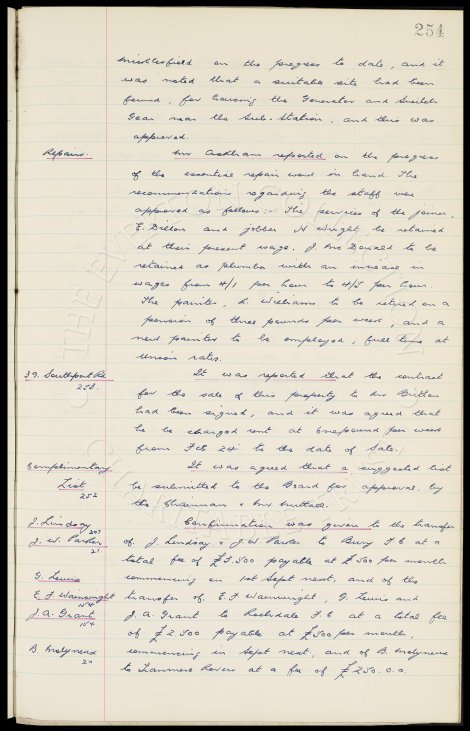 254
Micklesfield on the progress to date, and it
was noted that a suitable site had been
found, for housing the Generator and Switch
Gear near the Sub-Station, and this was
approved.
Repairs. Mr Cockham reported on the progress
of the essential repair work in hand. The
recommendations regarding the staff were
approved as follows:- The services of the joiner,
E. Dillon and jobber N Wright be retained
at their present wage. J. McDonald to be
retained as plumber with an increase in
wages from 4/1 per hour to 4/5 per hour.
The painter, L. Williams to be retired on a
pension of three pounds per week, and a
new painter to be employed, full time at
Union rates.
39. Southport Rd It was reported that the contract
258. for the sale of this property to Mr Britton
had been signed, and it was agreed that
he be charged rent at one pound per week
from Feb 24th to the date of Sale.
Complimentary It was agreed that a suggested list
List be submitted to the Board for approval by
252 the Chairman & Mr Nuttall.
J. Lindsay 207 Confirmation was given to the transfer
J. W. Parker of J. Lindsay & J. W. Parker to Bury F.C at a
21 total fee of £3,500 payable at £500 per month
G. Lewis commencing on 1st Sept next, and of the
E. F Wainwright transfer of E. F Wainwright, G. Lewis and
154
J. A. Grant J. A. Grant to Rochdale F.C at a total fee
154 of £2500 payable at £500 per month,
B. Molyneux commencing in Sept next, and of B. Molyneux
20 to Tranmere Rovers at a fee of £250.0.0.